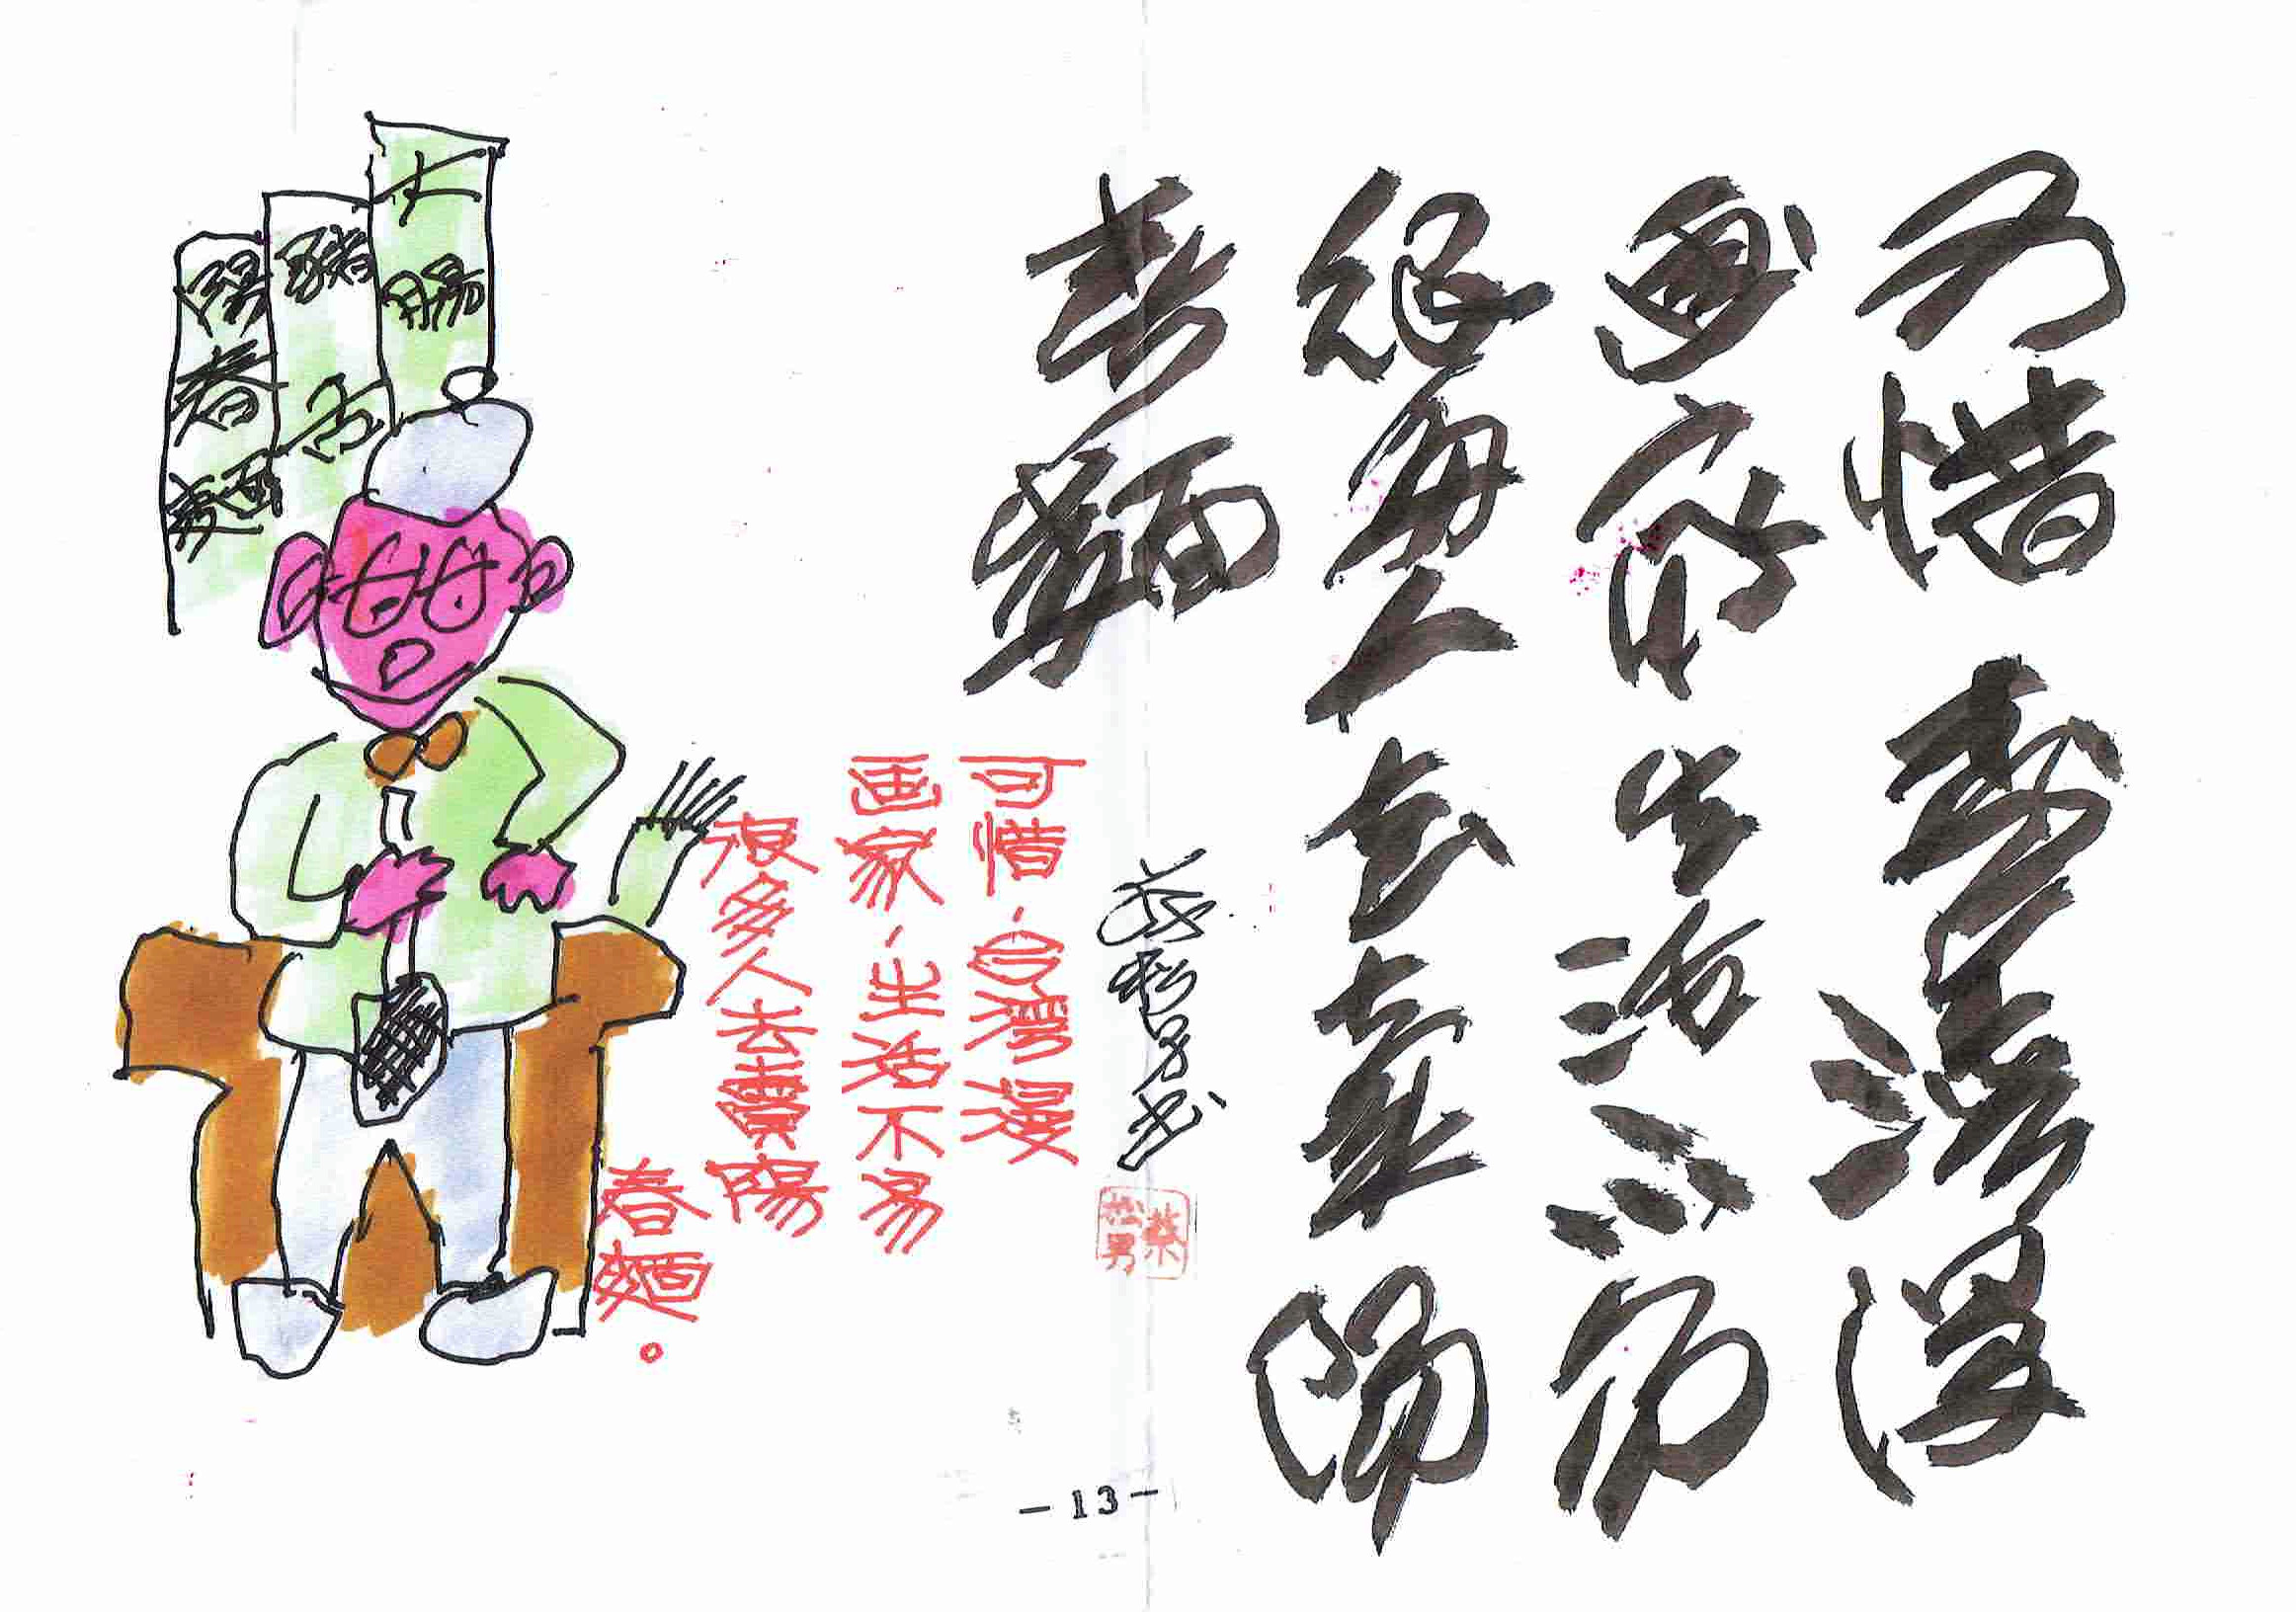 可惜臺灣漫
畫家生活不易
很多人去賣陽
春麵
蔡松男書
蔡松男
可惜，台灣漫
画家，生活不易
很多人去賣陽
春麵。
大腸
豬舌
陽春麵
-13-